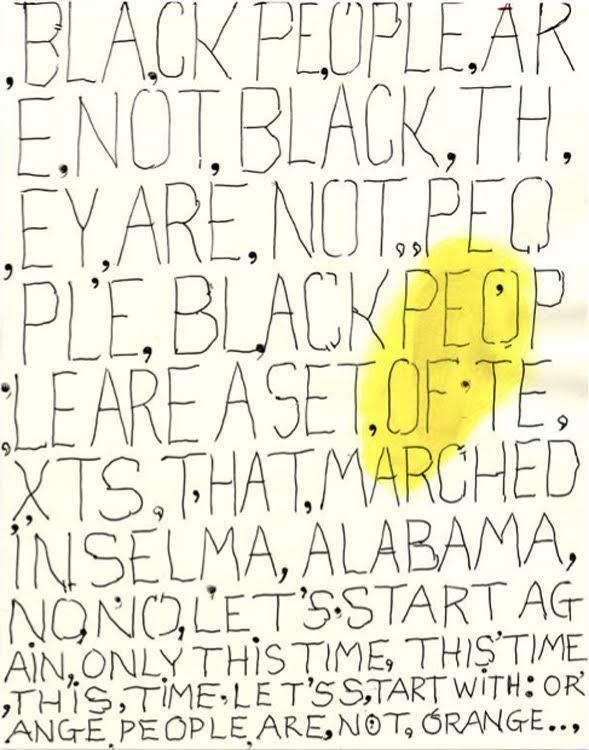 ,BLA,CK PE,OPLE,AR
E,NOT,BLACK,TH,
,EY,ARE,NOT,,PEO
PLE,BLACKPEOP
,LEARE A SET,OF TE,
XTS,T,HAT,MARCHED
,,INSELMA,ALABAMA,
NO,NO,LET'S,START AG
AIN,ONLY THIS TIME, THIS TIME
,THIS,TIME,LET'S S,TART WITH: OR
ANGE PEOPLE ARE,NOT,ORANGE..,